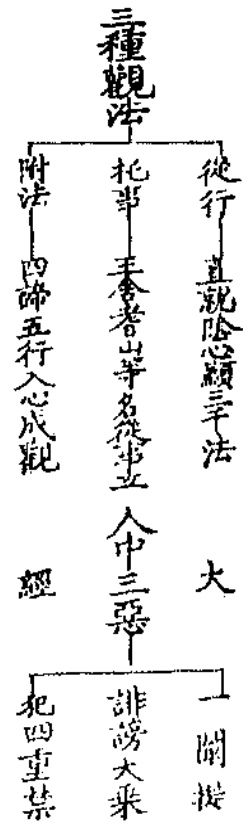 三種觀法
從行 直觀陰心顯三千法
托事 王舍耆山等名從事立
附法 四諦五行入心成觀
大經
人中三惡
一闡提
誹謗大乘
犯四重禁